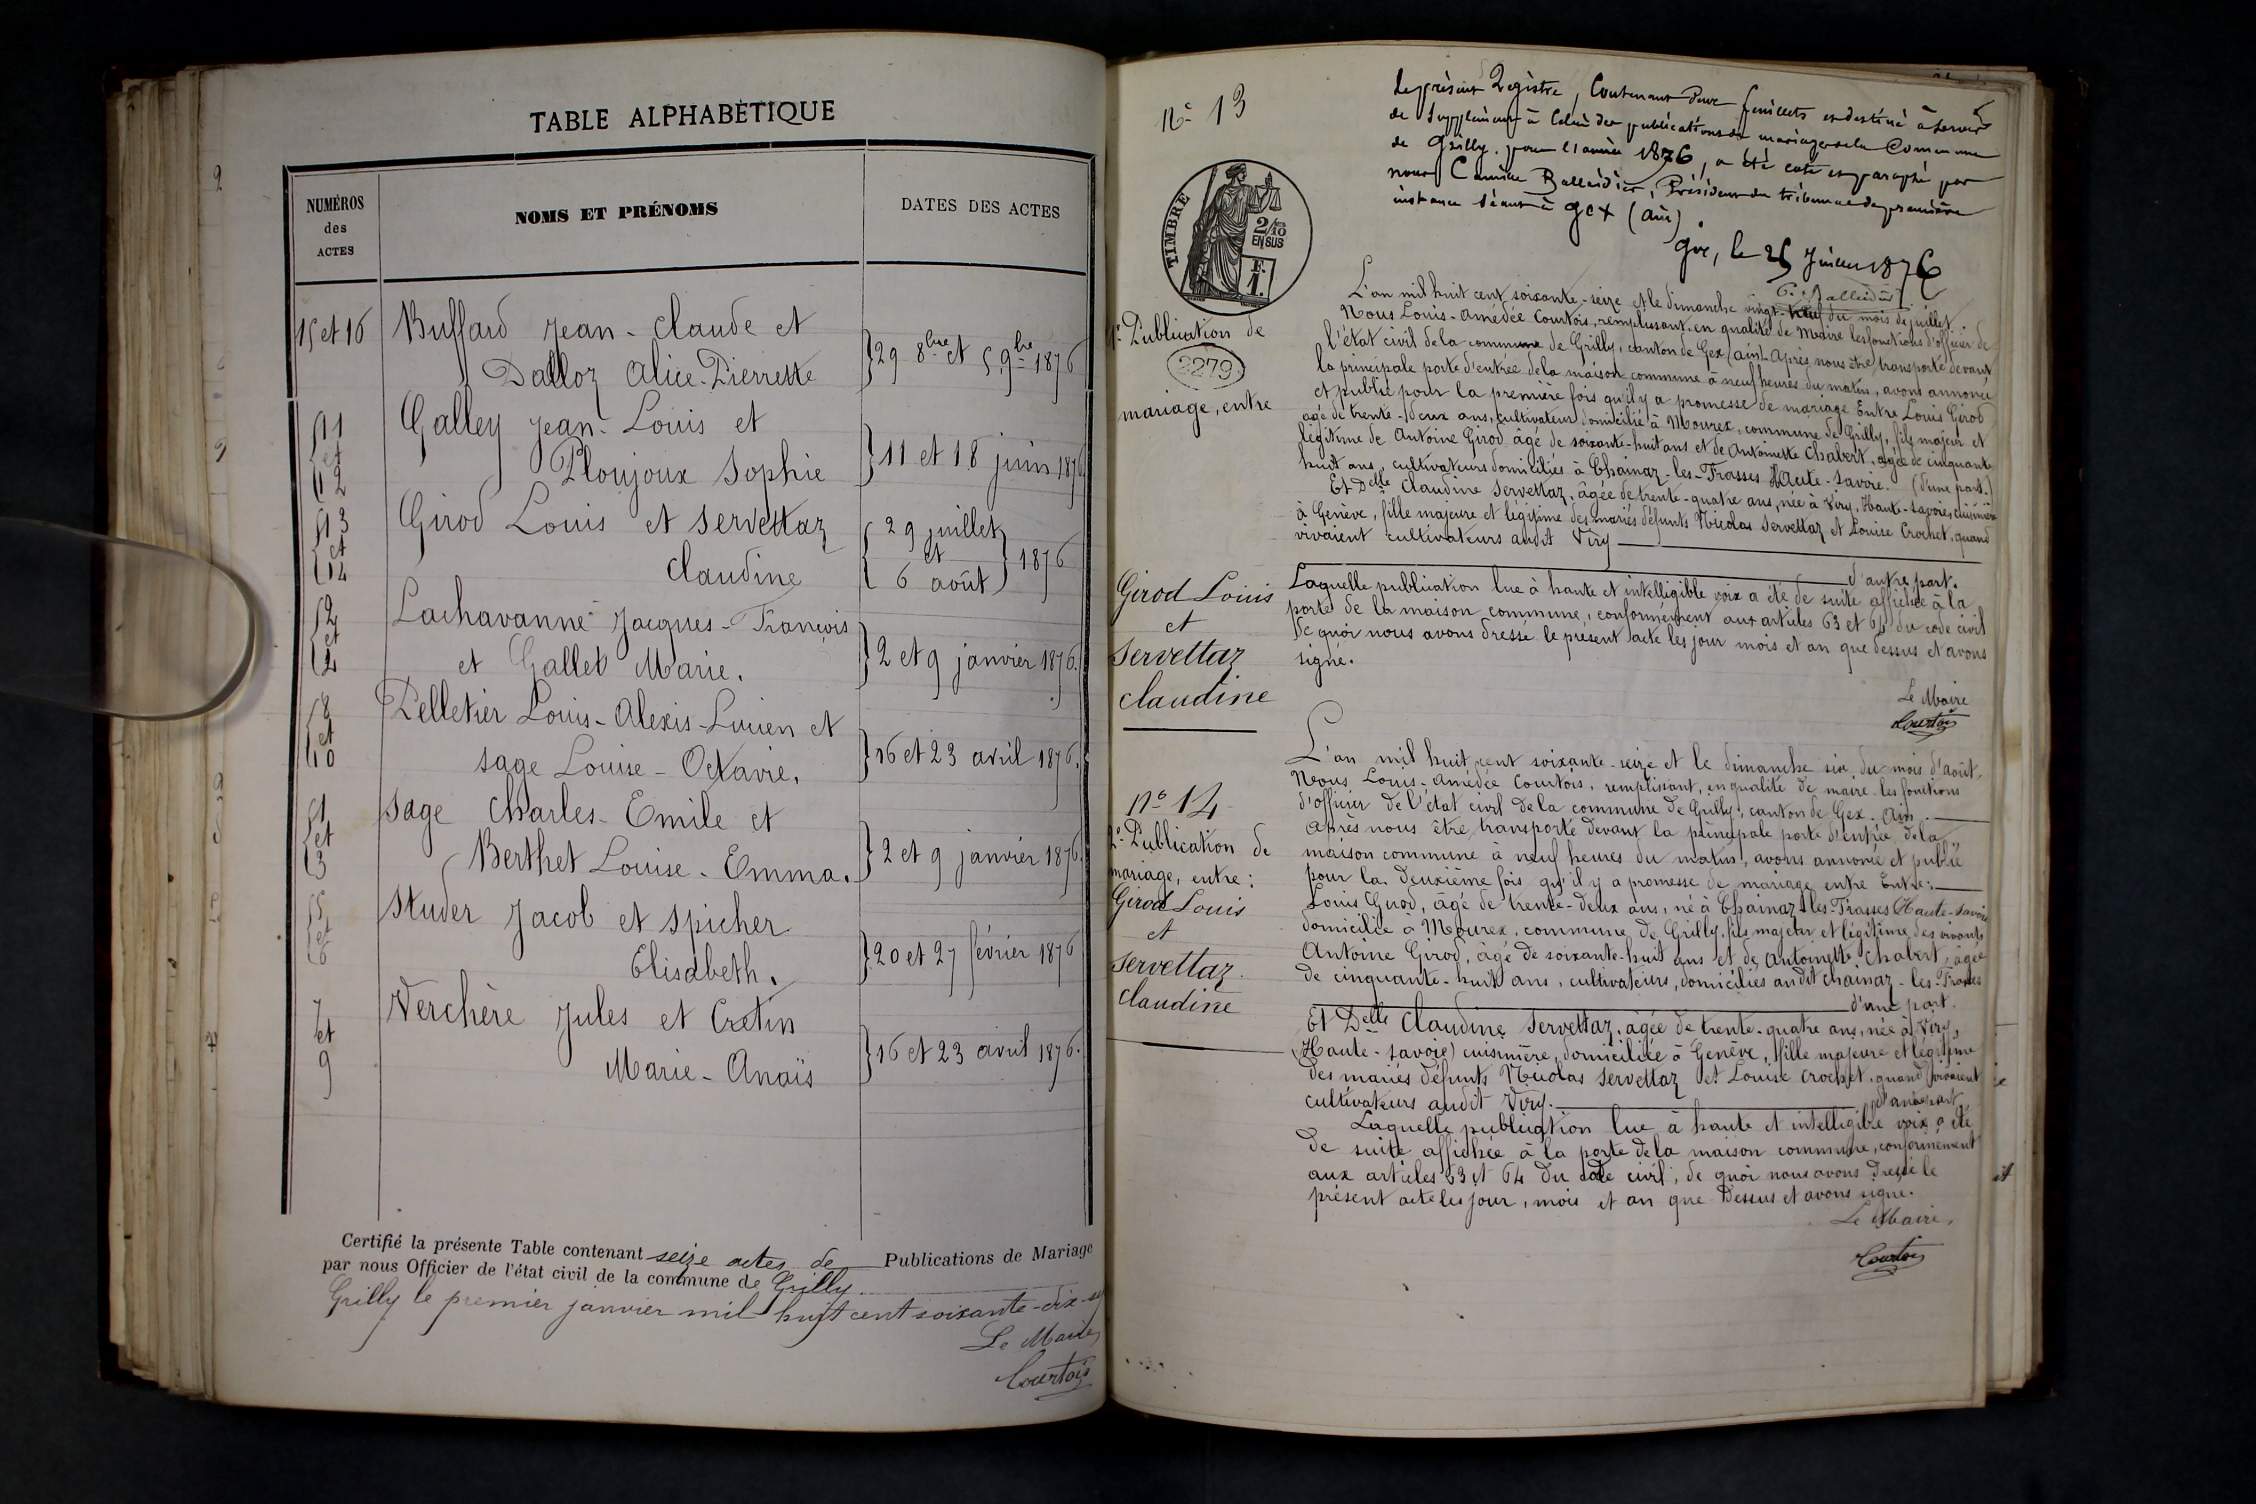 TABLE ALPHABÉTIQUE
NUMÉROS des ACTES
NOMS ET PRÉNOMS
DATES DES ACTES
15 et 16 Buffard Jean-Claude et
Dalloz Alice-Pierrette
29 8bre et 5 9bre 1876
11 et 12 Galley Jean-Louis et
Ploujoux Sophie
11 et 18 juin 1876
13 et 14 Girod Louis et Servettaz
Claudine
29 juillet et 6 août 1876
2 et 4 Lachavanne Jacques-François
et Gallet Marie.
2 et 9 janvier 1876.
8 et 10 Pelletier Louis-Alexis-Lucien et
Sage Louise-Octavie.
16 et 23 avril 1876.
1 et 3 Sage Charles-Emile et
Berthet Louise-Emma.
2 et 9 janvier 1876.
5 et 6 Studer Jacob et Spicher
Elisabeth.
20 et 27 février 1876
7 et 9 Verchère Jules et Cretin
Marie-Anaïs
16 et 23 avril 1876.
Certifié la présente Table contenant seize actes de Publications de Mariage
par nous Officier de l'état civil de la commune de Grilly.
Grilly le premier janvier mil huit cent soixante-dix-
Le Maire
Courtois
N° 13
Le présent Registre, Contenant deux feuillets est destiné à servir
de Supplément à Celui des publications de mariages de la Commune
de Grilly, pour l'année 1876, a été coté et paraphé par
nous Camille Balleidier, Président du tribunal de première
instance séant à Gex (Ain).
Gex, le 25 Juillet 1876
C. Balleidier
TIMBRE
2/10 EN SUS
F. 1.
1e Publication de
2279
mariage, entre
Girod Louis
et
Servettaz
Claudine
L'an mil huit cent soixante-seize et le dimanche vingt-neuf du mois de juillet.
Nous Louis-Amédée Courtois, remplissant en qualité de Maire les fonctions d'officier de
l'état civil de la commune de Grilly, canton de Gex (Ain). Après nous être transporté devant
la principale porte d'entrée de la maison commune à neuf heures du matin, avons annoncé
et publié pour la première fois qu'il y a promesse de mariage Entre Louis Girod
âgé de trente-deux ans, cultivateur domicilié à Mourex, commune de Grilly, fils majeur et
légitime de Antoine Girod âgé de soixante-huit ans et de Antoinette Chabert, âgée de cinquante
huit ans, cultivateurs domiciliés à Chainaz-les-Frasses Haute-Savoie. (d'une part.)
Et Delle Claudine Servettaz, âgée de trente-quatre ans, née à Viry, Haute-Savoie, cuisinière
à Genève, fille majeure et légitime des mariés défunts Nicolas Servettaz et Louise Crochet, quand
vivaient cultivateurs audit Viry
d'autre part.
Laquelle publication lue à haute et intelligible voix a été de suite affichée à la
porte de la maison commune, conformément aux articles 63 et 64 du code civil
De quoi nous avons dressé le présent acte les jour mois et an que dessus et avons
signé.
Le Maire
Courtois
N° 14
2e Publication de
mariage, entre:
Girod Louis
et
Servettaz
Claudine
L'an mil huit cent soixante-seize et le dimanche six du mois d'août,
Nous Louis-Amédée Courtois, remplissant, en qualité de maire les fonctions
d'officier de l'état civil de la commune de Grilly, canton de Gex. Ain.
Après nous être transporté devant la principale porte d'entrée de la
maison commune à neuf heures du matin, avons annoncé et publié
pour la deuxième fois qu'il y a promesse de mariage entre Entre:
Louis Girod, âgé de trente-deux ans, né à Chainaz-les-Frasses Haute-Savoie
domicilié à Mourex, commune de Grilly, fils majeur et légitime des vivants
Antoine Girod, âgé de soixante-huit ans et de Antoinette Chabert, âgée
de cinquante-huit ans, cultivateurs, domiciliés audit Chainaz-les-Frasses
d'une part.
Et Delle Claudine Servettaz, âgée de trente-quatre ans, née à Viry,
(Haute-Savoie) cuisinière, domiciliée à Genève, fille majeure et légitime
des mariés défunts Nicolas Servettaz et Louise Crochet, quand vivaient
cultivateurs audit Viry. d'autre part.
Laquelle publication lue à haute et intelligible voix a été
de suite affichée à la porte de la maison commune, conformément
aux articles 63 et 64 du code civil; de quoi nous avons dressé le
présent acte les jour, mois et an que dessus et avons signé.
Le Maire,
Courtois